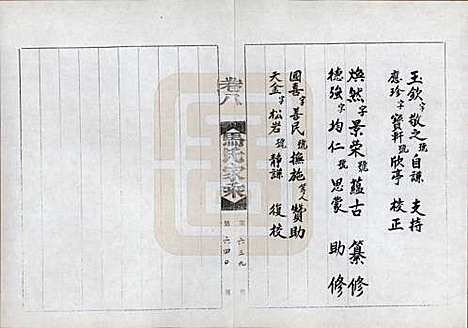 玉欽字敬之號自謙 支持
應珍字贊軒號欣亭 校正
煥然字景荣號蘊古 纂修
德強字均仁號思蒙 助修
國喜字善民號撫施等人贊助
天金字松岩號靜謙 復校
卷八
馬氏家乘
第六三九
第六四〇